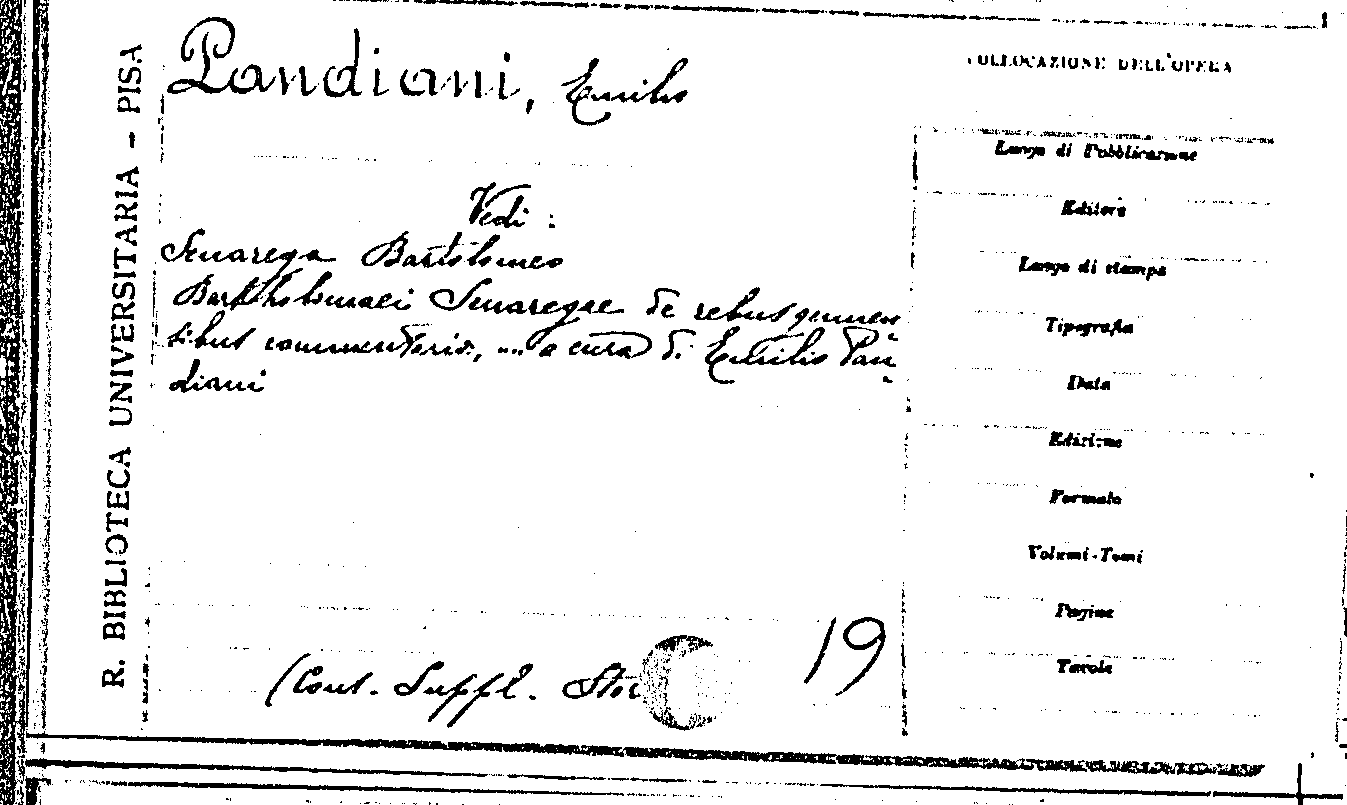 R. BIBLIOTECA UNIVERSITARIA - PISA
Pandiani, Emilio
Vedi:
Senarega Bartolomeo
Bartholomaei Senaregae de rebus genuen-
sibus commentaria, ... a cura di Emilio Pan-
diani
(Cont. Suppl. Stor
19
COLLOCAZIONE DELL'OPERA
Luogo di Pubblicazione
Editore
Luogo di stampa
Tipografia
Data
Edizione
Formato
Volumi-Tomi
Pagine
Tavole